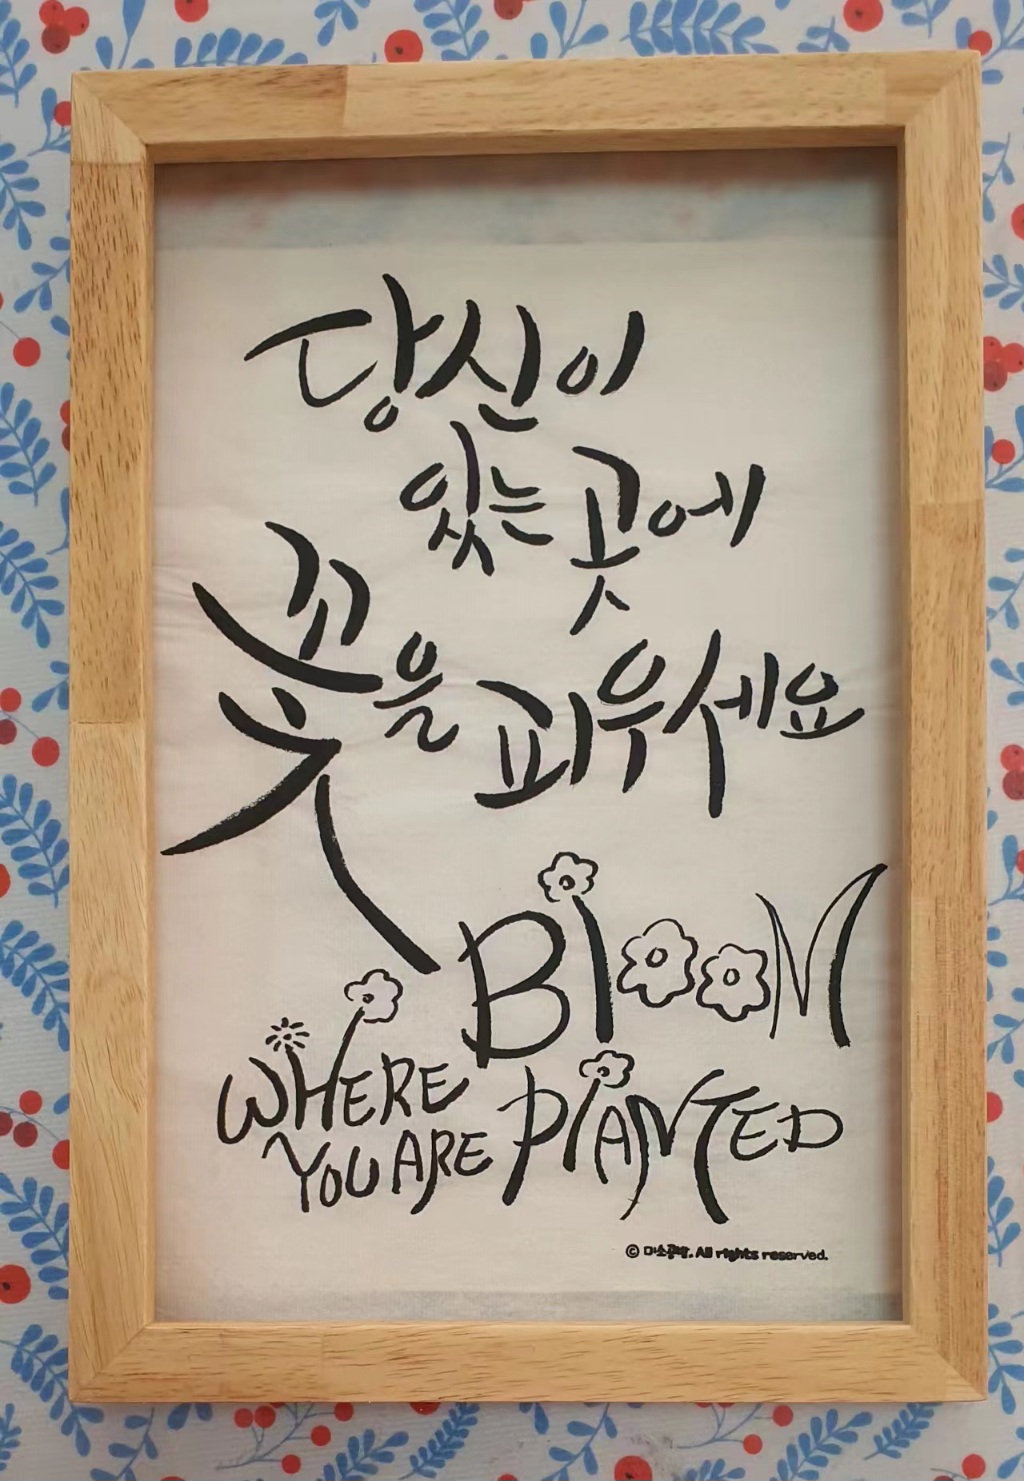 당신이
있는 곳에
꽃을 피우세요
BlooM
WHERE
YOU ARE PlANTED
© 미소공방. All rights reserved.